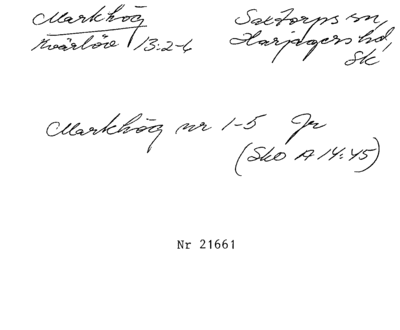 Markhög
Kvärlöv 13:2-6
Saxtorps sn,
Harjagers hd,
Sk
Markhög nr 1-5 Jr
(Sko A 14:45)
Nr 21661